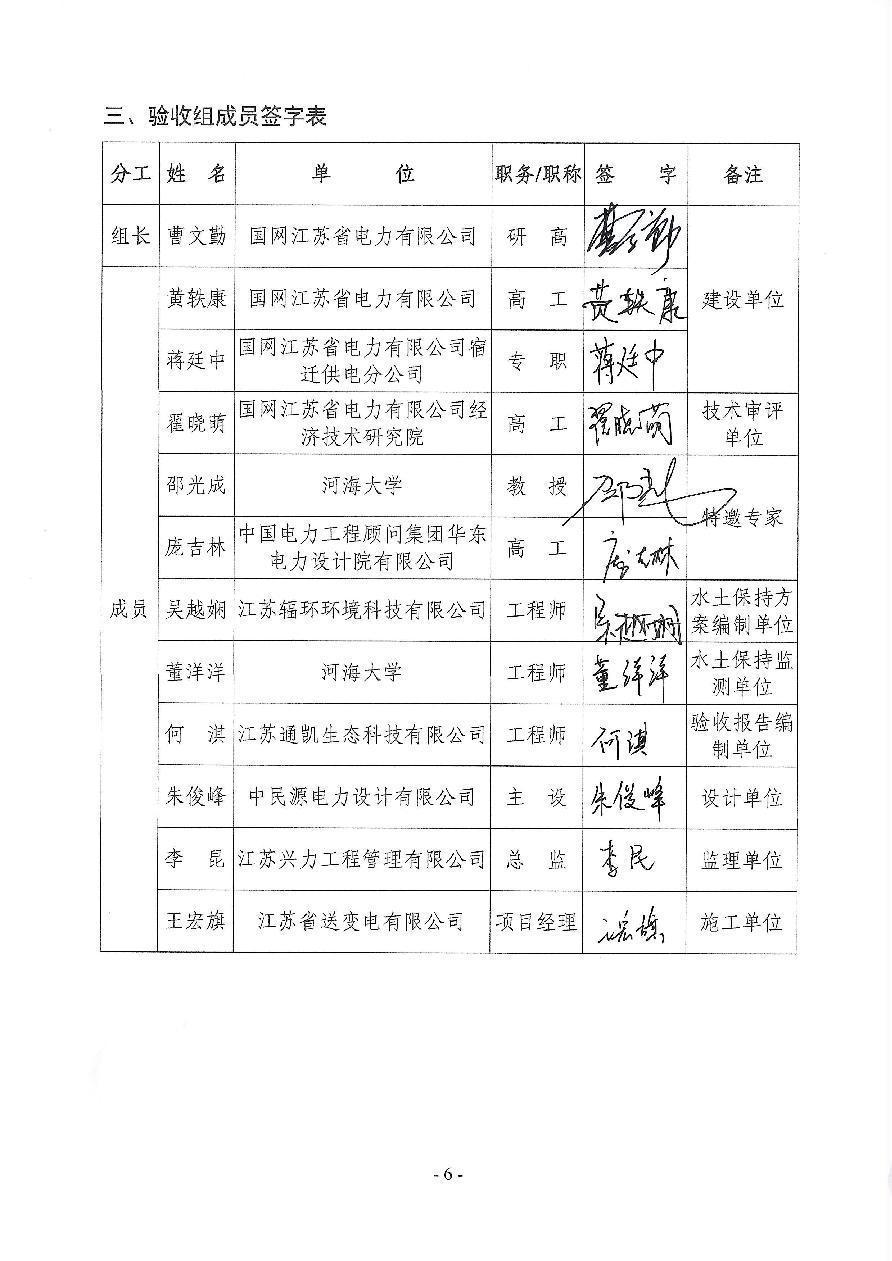 三、验收组成员签字表
分工 姓 名 单 位 职务/职称 签 字 备注
组长 曹文勤 国网江苏省电力有限公司 研 高 曹文勤
黄轶康 国网江苏省电力有限公司 高 工 黄轶康 建设单位
国网江苏省电力有限公司宿
蒋廷中 专 职 蒋廷中
迁供电分公司
国网江苏省电力有限公司经 技术审评
翟晓萌 高 工 翟晓萌
济技术研究院 单位
邵光成 河海大学 教 授
特邀专家
中国电力工程顾问集团华东
庞吉林 高 工 庞吉林
电力设计院有限公司
水土保持方
成员 吴越娴 江苏辐环环境科技有限公司 工程师 吴越娴
案编制单位
水土保持监
董洋洋 河海大学 工程师 董洋洋
测单位
验收报告编
何 淇 江苏通凯生态科技有限公司 工程师 何淇
制单位
朱俊峰 中民源电力设计有限公司 主 设 朱俊峰 设计单位
李 昆 江苏兴力工程管理有限公司 总 监 监理单位
王宏旗 江苏省送变电有限公司 项目经理 施工单位
- 6 -